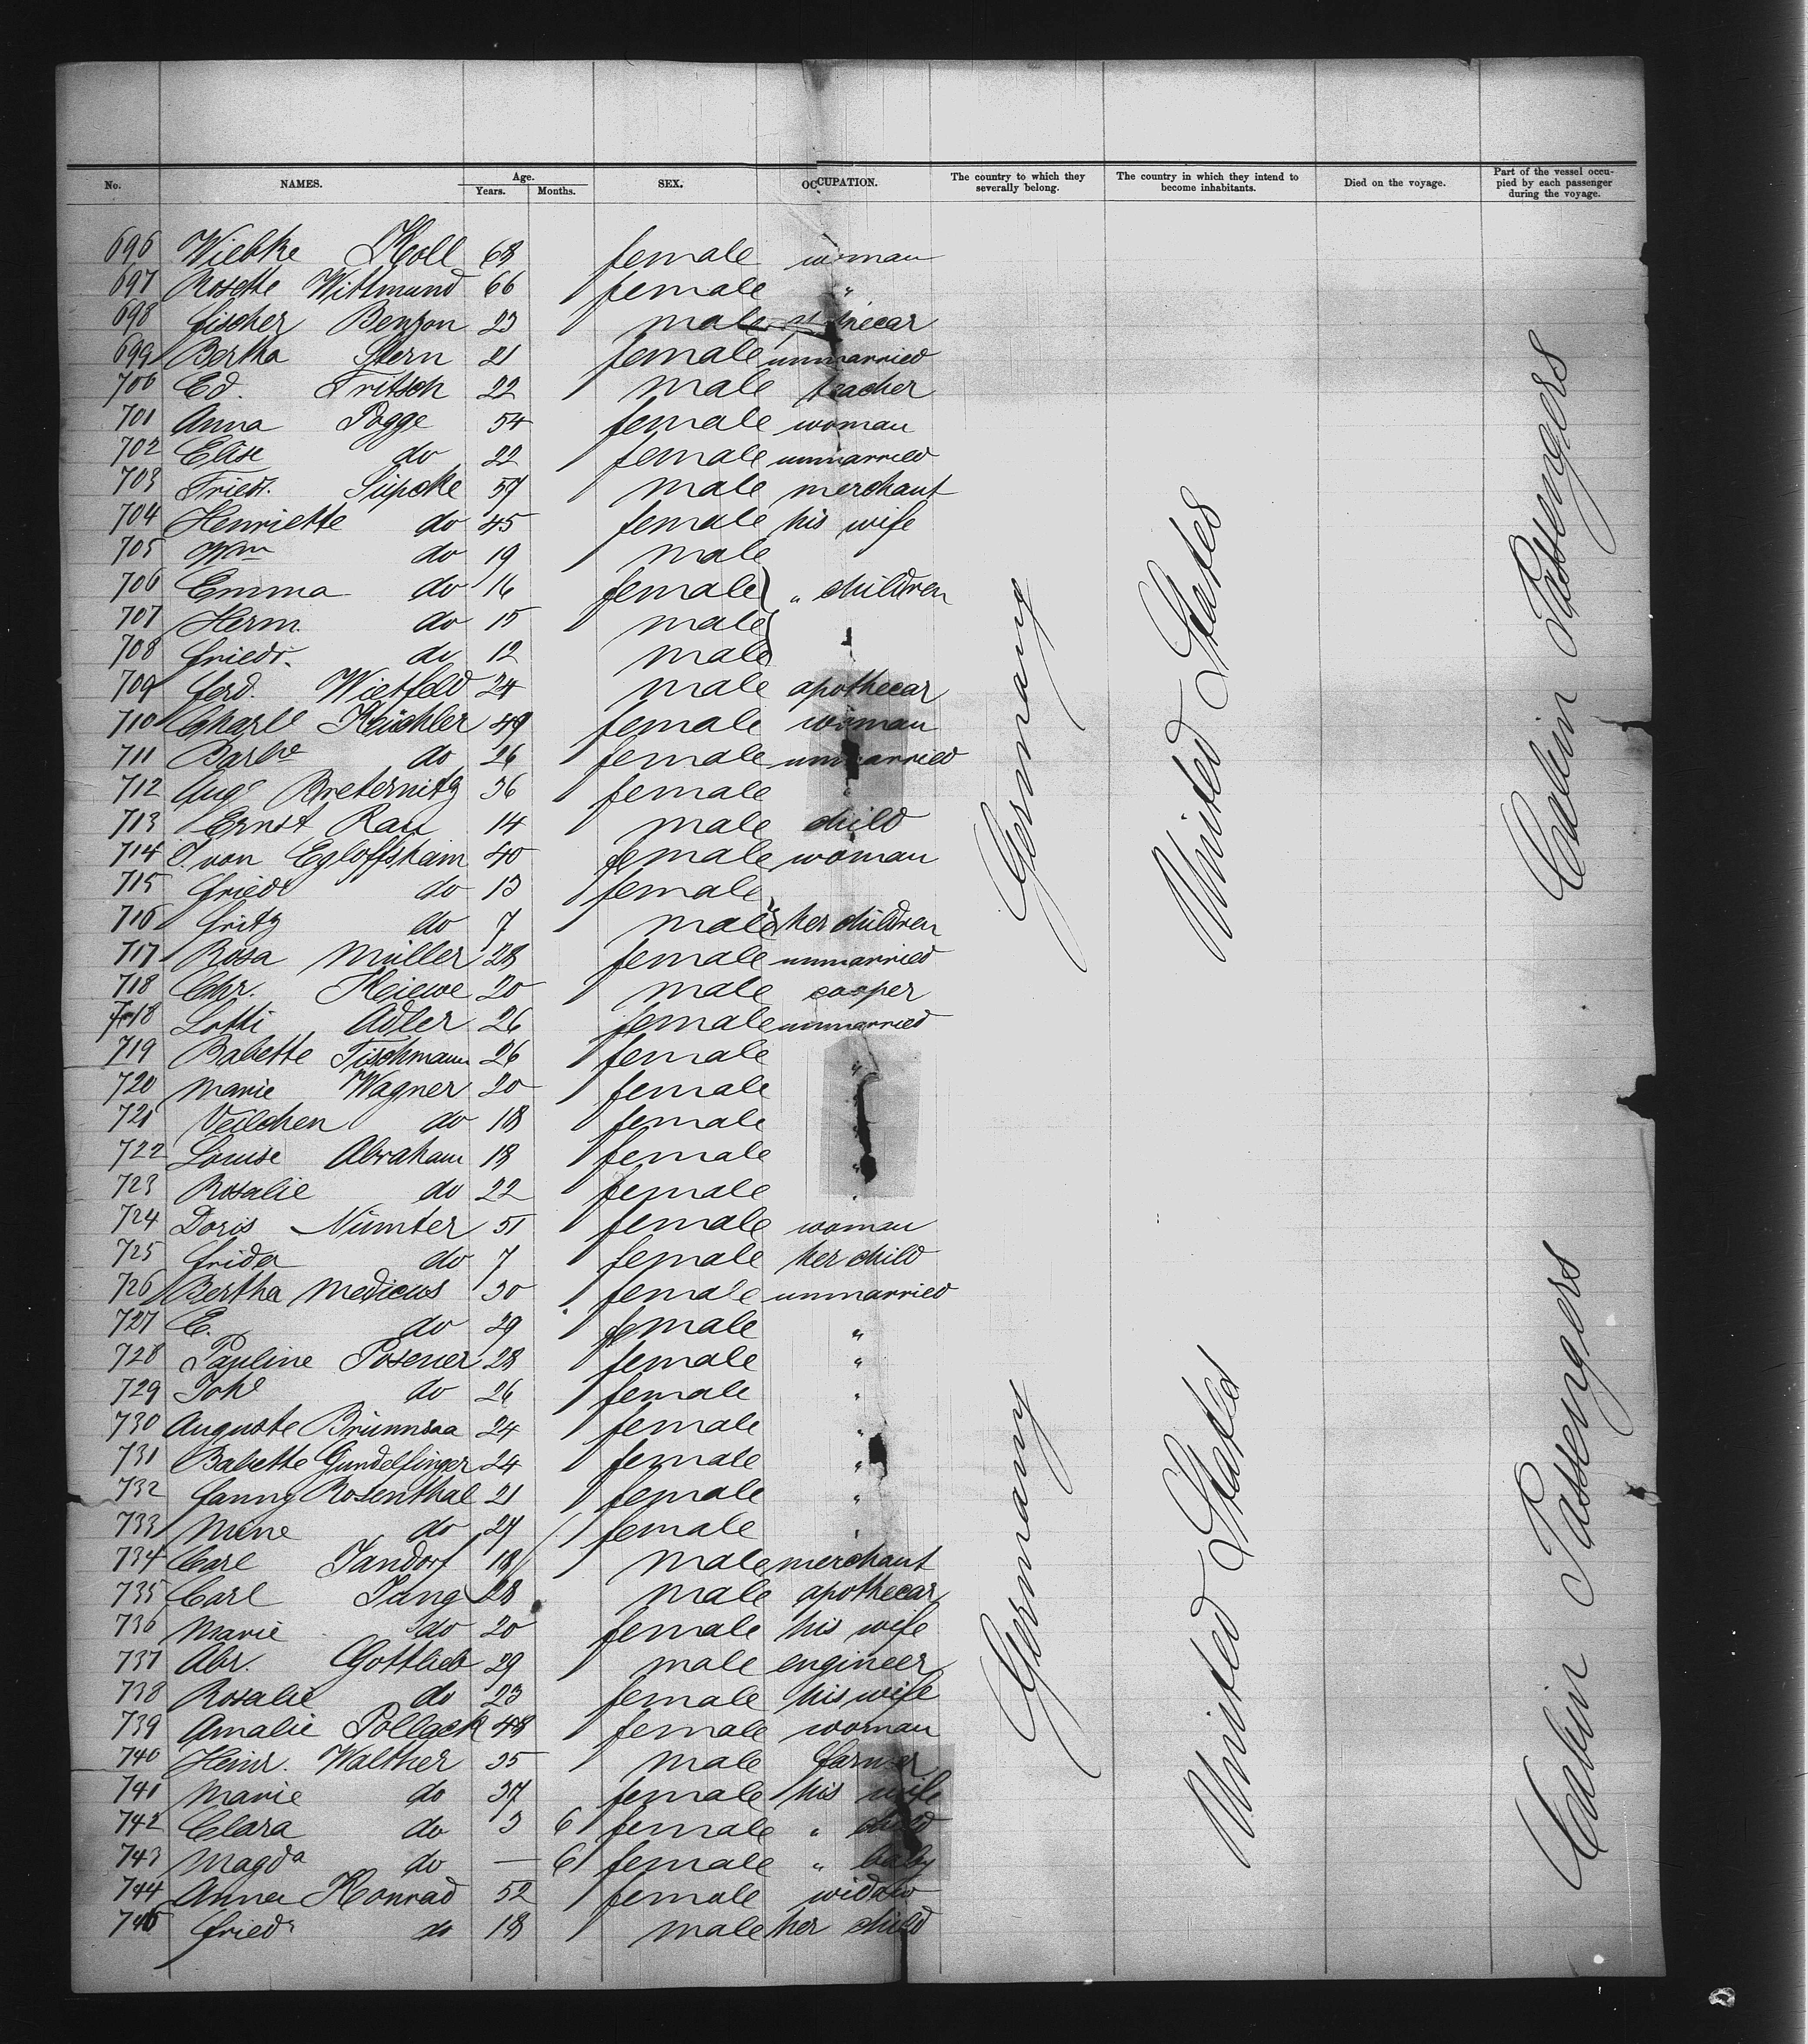 No. NAMES. Age. Years. Months. SEX. OCCUPATION. The country to which they severally belong. The country in which they intend to become inhabitants. Died on the voyage. Part of the vessel occupied by each passenger during the voyage.
696 Wiebke Koll 68 female woman
697 Rosette Wittmund 66 female "
698 Fischer Benzon 23 male
699 Bertha Stern 21 female unmarried
700 Ed. Fritsch 22 male teacher
701 Anna Pogge 54 female woman
702 Elise do 22 female unmarried
703 Friedr. Süpcke 57 male merchant
704 Henriette do 45 female his wife
705 Wm do 19 male
706 Emma do 16 female " children
707 Herm. do 15 male
708 Friedr. do 12 male
709 Ferd. Wietfeld 24 male apothecar
710 Charl Küchler 49 female woman
711 Barbe do 26 female unmarried
712 Auge Breternitz 36 female "
713 Ernst Rau 14 male child
714 S. von Egloffsheim 40 female woman
715 Friedr do 13 female
716 Fritz do 7 male her children
717 Rosa Müller 28 female unmarried
718 Chr. Kiewe 20 male cooper
718 Lotti Adler 26 female unmarried
719 Babette Tischmann 26 female "
720 Marie Wagner 20 female "
721 Veilchen do 18 female "
722 Louise Abraham 18 female "
723 Rosalie do 22 female "
724 Doris Nümter 51 female woman
725 Frida do 7 female her child
726 Bertha Medicus 30 female unmarried
727 E. do 29 female "
728 Pauline Posener 28 female "
729 Johe do 26 female "
730 Auguste 24 female "
731 Babette Gundelfinger 24 female "
732 Fanny Rosenthal 21 female "
733 Mine do 27 female "
734 Carl Jandorf 18 male merchant
735 Carl Jung 28 male apothecar
736 Marie do 20 female his wife
737 Abr. Gottlieb 29 male engineer
738 Rosalie do 23 female his wife
739 Amalie Pollack 48 female woman
740 Heinr. Walther 35 male farmer
741 Marie do 37 female his wife
742 Clara do 3 6 female " child
743 Magda do — 6 female " baby
744 Anna Konrad 52 female widow
745 Friedr do 18 male her child
Germany
United States
Cabin Passengers
Germany
United States
Cabin Passengers